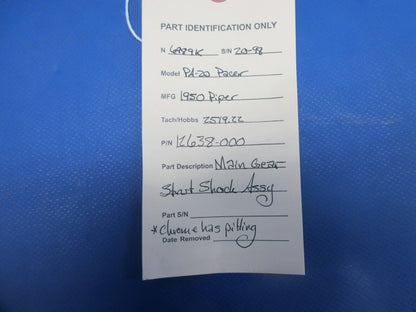 PART IDENTIFICATION ONLY
N 6889K S/N 20-98
Model PA-20 Pacer
MFG 1950 Piper
Tach/Hobbs 2519.22
P/N 12638-000
Part Description Main Gear
Strut Shock Assy
Part S/N
*chrome has pitting
Date Removed